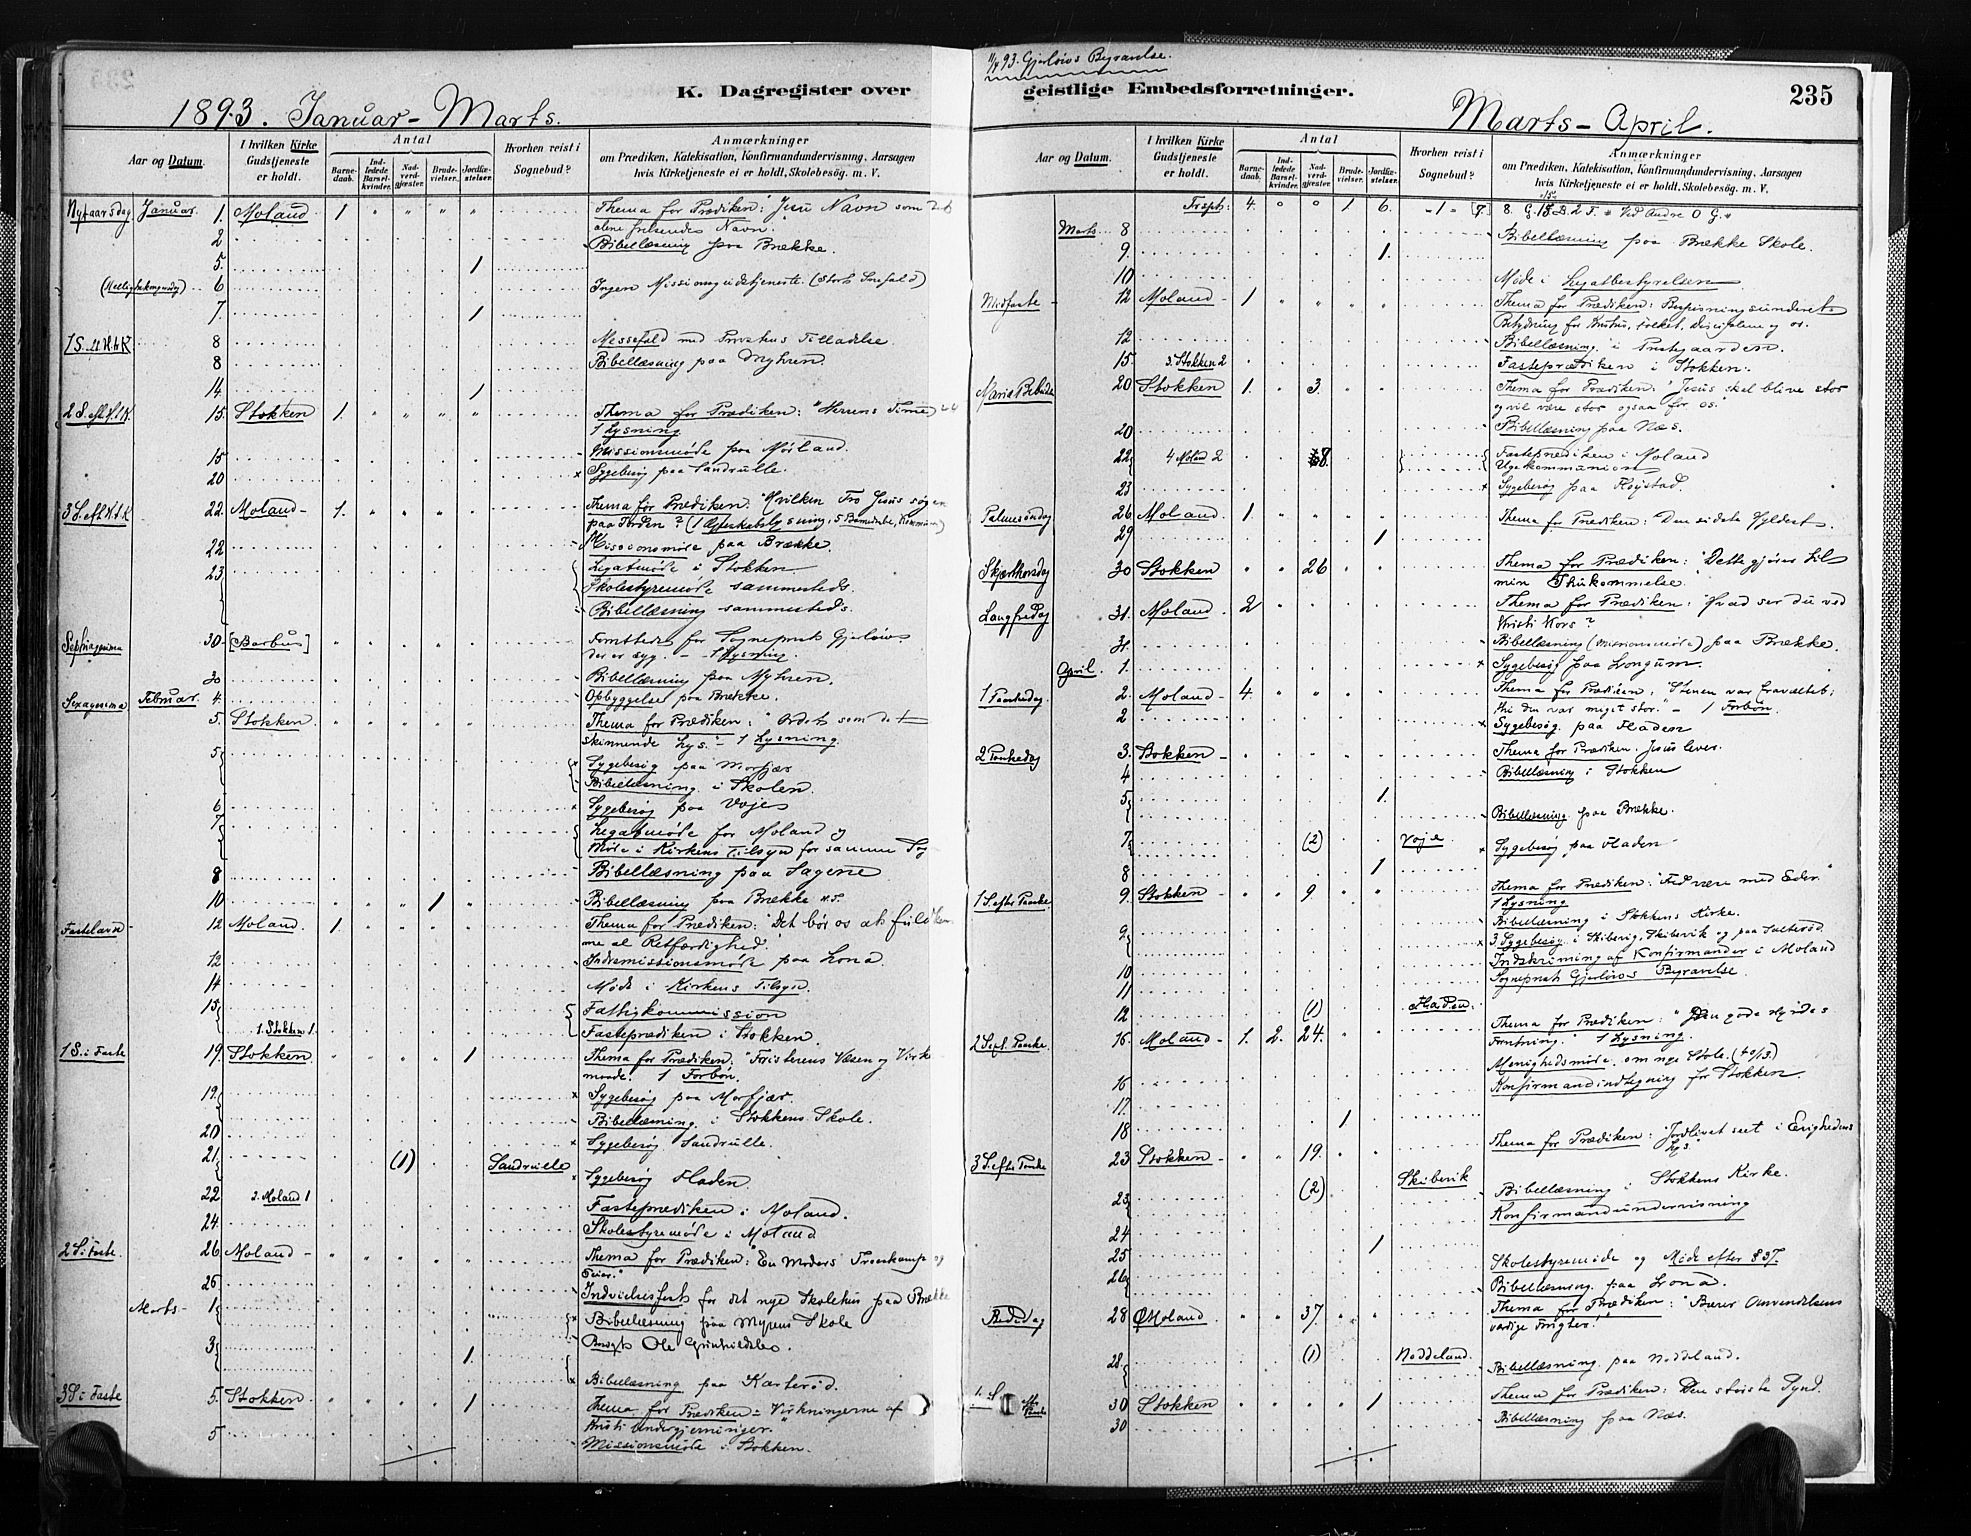 K. Dagregister over
1893. Januar - Marts.
Aar og Datum.
I hvilken Kirke Gudstjeneste er holdt.
Antal
Barnedaab.
Indledede Barselkvinder.
Nadverdgjæster.
Brudevielser.
Jordfæstelser.
Hvorhen reist i Sognebud?
Anmærkninger
om Prædiken, Katekisation, Konfirmandundervisning, Aarsagen
hvis Kirketjeneste ei er holdt, Skolebesøg. m. V.
Nytaarsdag Januar. 1. Moland 1 " " " " Thema for Prædiken: Jesu Navn som det
alene frelsendes Navn.
2 Bibellæsning paa Brække.
5. 1
(Helligtrekongersdag) 6 Ingen Missionsgudstjeneste. (Stort Snefald)
7 1
1 S. e. H.t.K 8 Messefald med Provstens Tilladelse.
8 Bibellæsning paa Myhren.
14. 1
2 S. eft H.t.K. 15. Stokken 1. " " " " Thema for Prædiken: "Herrens Time"
1 Lysning
15 Missionsmøde paa Moland.
20 x Sygebesøg paa Sandrulle.
3 S. eft H.t.K 22. Moland - 1. Thema for Prædiken: "Hvilken Tro Jesus søger
paa Jorden?"
22 Missionsmøde paa Brække.
23 Legatmøde i Stokken
Skolestyremøde sammesteds.
Bibellæsning sammesteds.
Septuagesima 30 [Barbus] Forrettede for Sogneprest Gjerløws
der er syg. - 1 Lysning.
30 Bibellæsning paa Myhren.
Sexagesima Februar. 4. Opbyggelse paa Brække.
5. Stokken Thema for Prædiken: "Ordet som det
skinnende Lys." - 1 Lysning.
5 x Sygebesøg paa Morfjær
Bibellæsning i Skolen.
6 x Sygebesøg paa Voje
7 Legatmøde for Moland og
Møde i Kirkens Tilsyn for samme Sogn
8 Bibellæsning paa Sagene
10 1 Bibellæsning paa Brække N.S.
Fastelavn - 12 Moland. 1 Thema for Prædiken: "Det bør os at fuldkom
me al Retfærdighed."
12 Indremissionsmøde paa Lona
14 Møde i Kirkens Tilsyn.
15 Fattigkommission
1. Stokken 1. Fasteprædiken i Stokken.
1 S. i Faste 19. Stokken. 1 Thema for Prædiken: "Fristerens Væsen og Virke
maade. 1 Forbøn.
19. x Sygebesøg paa Morfjær.
Bibellæsning i Stokkens Skole.
20 x Sygebesøg Sandrulle.
21 (1) Sandrulle x Sygebesøg Fladen
22 2. Moland 1 Fasteprædiken i Moland.
24. Skolestyremøde i Moland
2 S. i Faste. 26 Moland - Thema for Prædiken: "En Moders Troeskamp og
Seier."
26 Indvielsesfest for det nye Skolehus paa Brække
Marts - 1 x Bibellæsning paa Myrens Skole
Besøgt Ole Gunhildsbo.
3 1.
x Bibellæsning paa Karterød.
3 S. i Faste 5. Stokken 1 Thema for Prædiken: Virkningerne af
Kristi Undergjerninger.
5 Missionsmøde i Stokken.
11/4 93. Gjerløws Begravelse.
geistlige Embedsforretninger.
235
Marts - April.
Aar og Datum.
I hvilken Kirke Gudstjeneste er holdt.
Antal
Barnedaab.
Indledede Barselkvinder.
Nadverdgjæster.
Brudevielser.
Jordfæstelser.
Hvorhen reist i Sognebud?
Anmærkninger
om Prædiken, Katekisation, Konfirmandundervisning, Aarsagen
hvis Kirketjeneste ei er holdt, Skolebesøg. m. V.
Trspt: 4. " " 1 6. - 1 " [9.] 8. G. 15 B. 2 F. * Ved Andre 0 G. *
Marts 8 Bibellæsning paa Brække Skole.
9. 1.
10 Møde i Legatbestyrelsen
Midfaste - 12 Moland - 1 Thema for Prædiken: Bespisningsunderets
Betydning for Kristus, Folket, Disciplene og os.
12 Bibellæsning i Prestgaarden.
15. 3. Stokken 2 Fasteprædiken i Stokken.
Maria Bebud. 20 Stokken 1. " 3. Thema for Prædiken: "Jesus skal blive stor
og vil være stor ogsaa for os."
20 Bibellæsning paa Næs.
22 4 Moland 2 8. Fasteprædiken i Moland
Ugekommunion
23 x Sygebesøg paa Fløistad.
Palmesøndag 26 Moland 1 Thema for Prædiken: Den sidste Hyldest.
29 1
Skjærthorsdag 30 Stokken " " 26 Thema for Prædiken: "Dette gjører til
min Ihukommelse.
Langfredag 31. Moland - 2 Thema for Prædiken: Hvad ser du ved
Kristi Kors?
31. Bibellæsning (Missionsmøde) paa Brække.
April. 1. x Sygebesøg paa Longum.
1 Paaskedag 2. Moland - 4. Thema for Prædiken: "Stenen var fravæltet;
thi den var meget stor." - 1 Forbøn.
2 x Sygebesøg paa Fladen
2 Paaskedag 3. Stokken - Thema for Prædiken. Jesus lever.
4 Bibellæsning i Stokken
5 1.
Bibellæsning paa Brække.
7 (2) Voje x Sygebesøg paa Fladen
8 1
1 S. efter Paaske. 9 Stokken - " " 9 Thema for Prædiken: "Fred være med Eder."
1 Lysning
9 Bibellæsning i Stokkens Kirke.
x 3 Sygebesøg i Skibevig, Skibevik og paa Salterød.
10 Indskrivning af Konfirmander i Moland
11 Sogneprest Gjerløws Begravelse.
12 (1) Fladen
2 S. eft. Paaske. 16. Moland - 1. 2. 24. Thema for Prædiken: "Den gode Hyrdes
Forretning." 1 Lysning.
16 Menighedsmøde om nye Stole. (40/13.)
17. Konfirmandindtegning for Stokken.
18 1
3 S. efter Paaske 23 Stokken - " " 19. Thema for Prædiken: "Jordlivet seet i Evighedens
Lys."
23 (2) Skibevik Bibellæsning i Stokkens Kirke.
24 Konfirmandundervisning
25 1
26 Skolestyremøde og Møde efter § 37.
Bibellæsning paa Lona.
Bededag 28 Moland. " " 37. Thema for Prædiken: "Bærer Omvendelsens
værdige Frugter!"
28. (1) Neddeland. Bibellæsning paa Neddeland.
4. S. eft. Paaske 30 Stokken 1 Thema for Prædiken: Den største Synd.
30 Bibellæsning paa Næs.